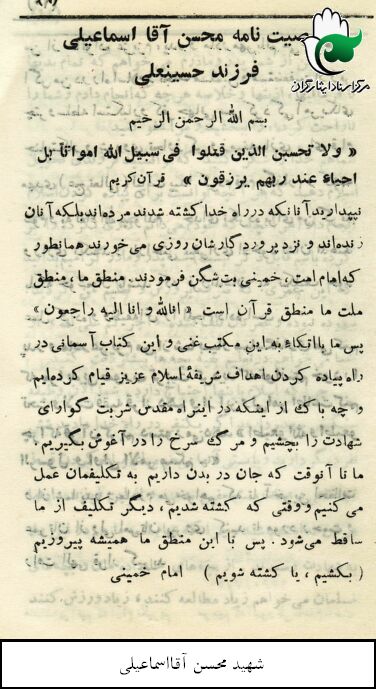 وصیت نامه محسن آقا اسماعیلی
فرزند حسینعلی
مرکز اسناد ایثارگران
بسم الله الرحمن الرحیم
« ولا تحسبن الذین قتلوا فی سبیل الله امواتا بل
احیاء عند ربهم یرزقون » قرآن کریم
نپندارید آنانکه در راه خدا کشته شدند مرده‌اند بلکه آنان
زنده‌اند و نزد پروردگارشان روزی می‌خورند همانطور
که امام امت ، خمینی بت‌شکن فرمودند. منطق ما ، منطق
ملت ما منطق قرآن است « انالله و انا الیه راجعون »
پس ما با اتکاء به این مکتب غنی و این کتاب آسمانی در
راه پیاده کردن اهداف شریفهٔ اسلام عزیز قیام کرده‌ایم
و چه باک از اینکه در اینراه مقدس شربت گوارای
شهادت را بچشیم و مرگ سرخ را در آغوش بگیریم .
ما تا آنوقت که جان در بدن داریم به تکلیفمان عمل
می کنیم و وقتی که کشته شدیم ، دیگر تکلیف از ما
ساقط می‌شود . پس با این منطق ما همیشه پیروزیم
( بکشیم ، یا کشته شویم ) امام خمینی
شهید محسن آقااسماعیلی